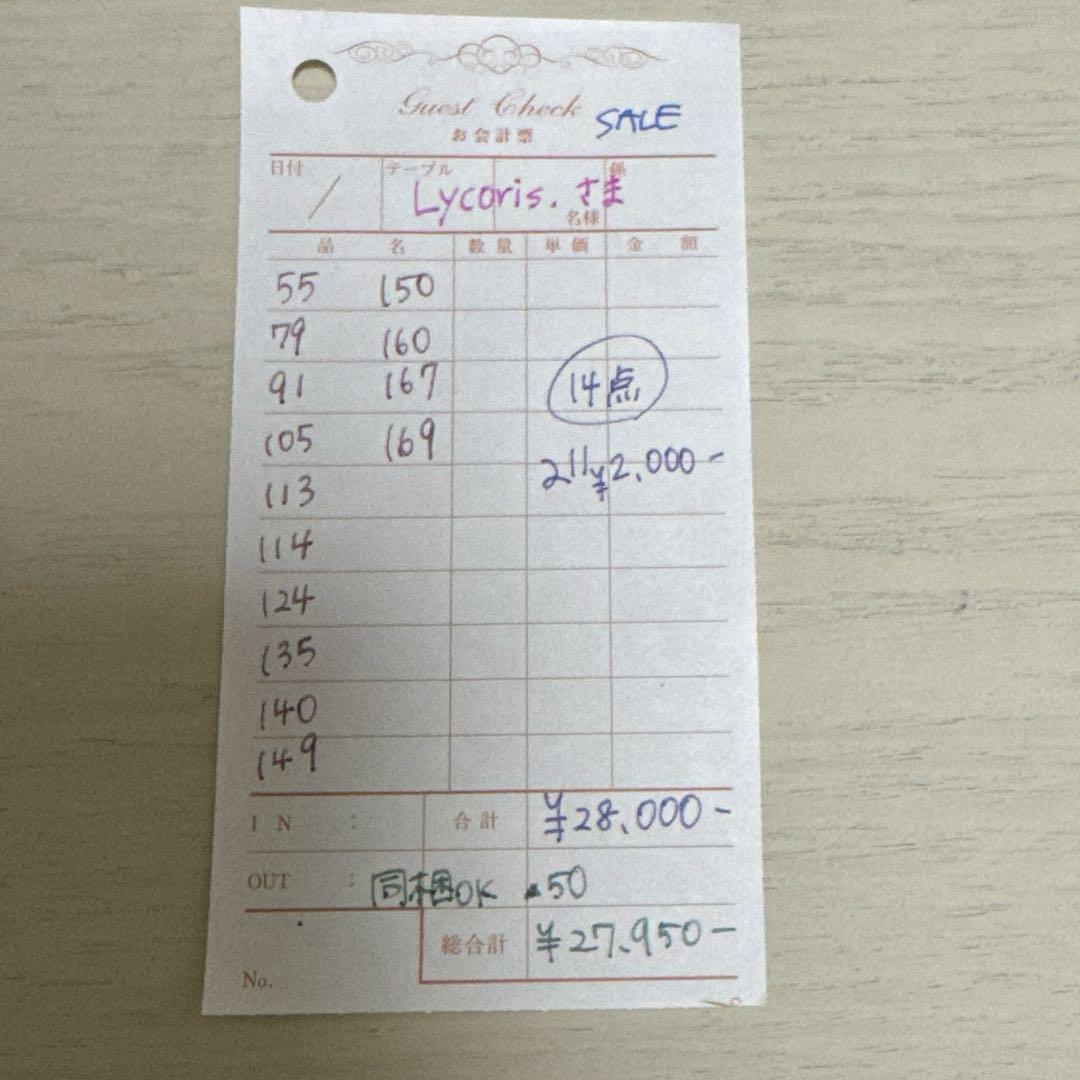 Guest Check
SALE
お会計票
日付 テーブル 係
/ Lycoris. さま
名様
品 名 数量 単価 金 額
55 150
79 160
91 167 14点
105 169
211¥2,000-
113
114
124
135
140
149
IN : 合計 ¥28,000-
OUT : 同梱OK -50
総合計 ¥27,950-
No.